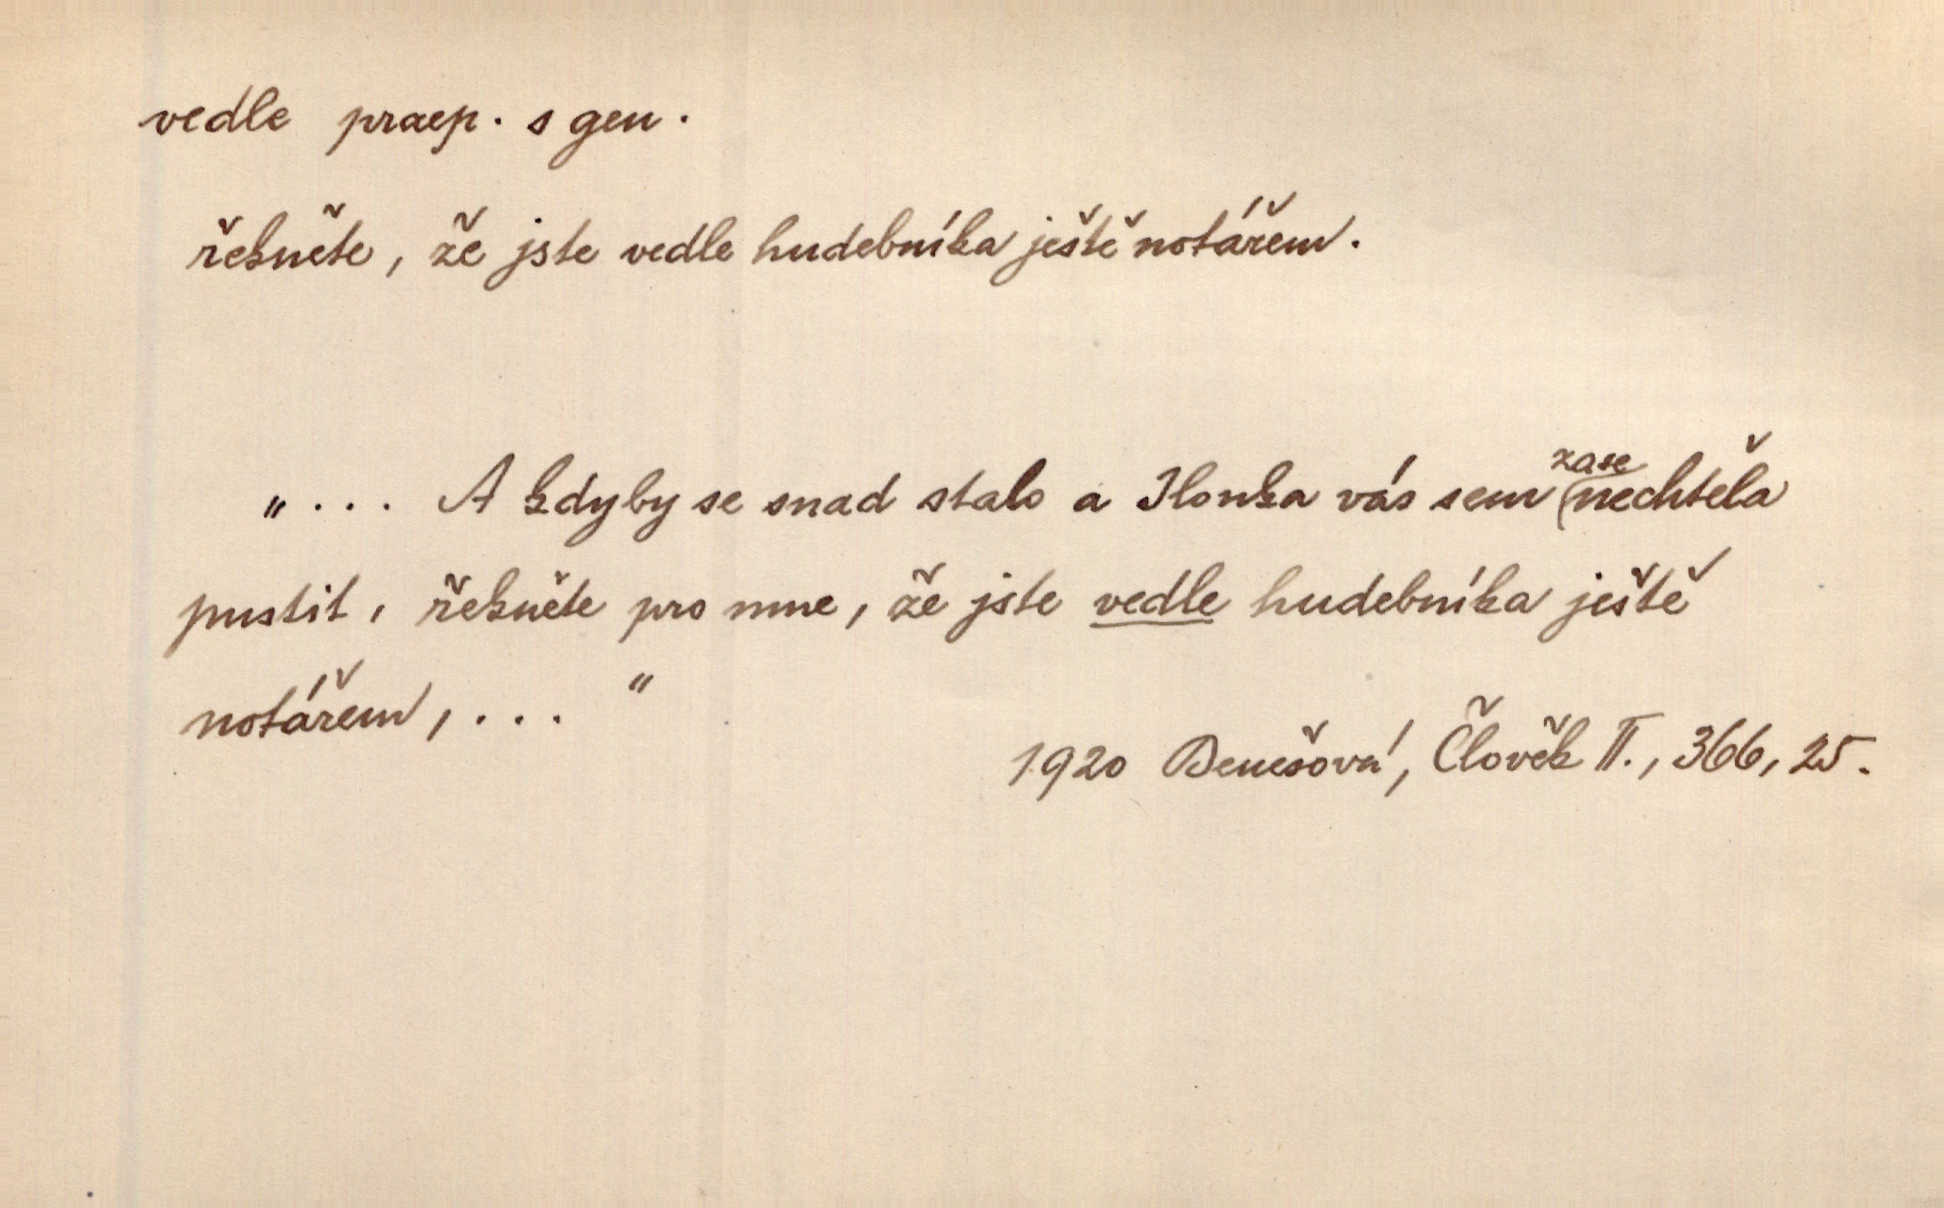 vedle praep. s gen.
řekněte, že jste vedle hudebníka ještě notářem.
„... A kdyby se snad stalo a Ilonka vás sem zase nechtěla
pustit, řekněte pro mne, že jste vedle hudebníka ještě
notářem, ... "
1920 Benešová, Člověk II., 366, 25.